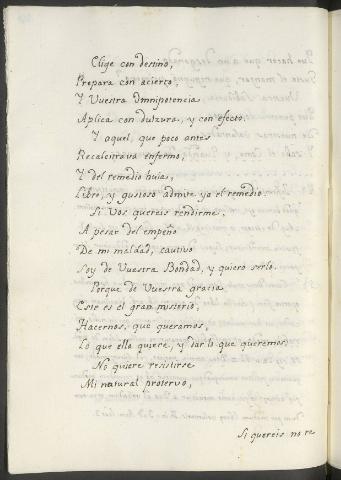 Elige con destino,
Prepara con acierto,
Y Vuestra Omnipotencia
Aplica con dulzura, y con efecto.
Y aquel, que poco antes
Recalcitrava enfermo,
Y del remedio huia,
Libre, y gustoso admite ya el remedio.
Si Vos quereis rendirme,
A pesar del empeño
De mi maldad, cautivo
Soy de Vuestra Bondad, y quiero serlo.
Porque de Vuestra gratia
Este es el gran misterio,
Hacernos, que queramos,
Lo que ella quiere, y dar lo que queremos.
No quiere resistirse
Mi natural protervo,
Si quereis no re